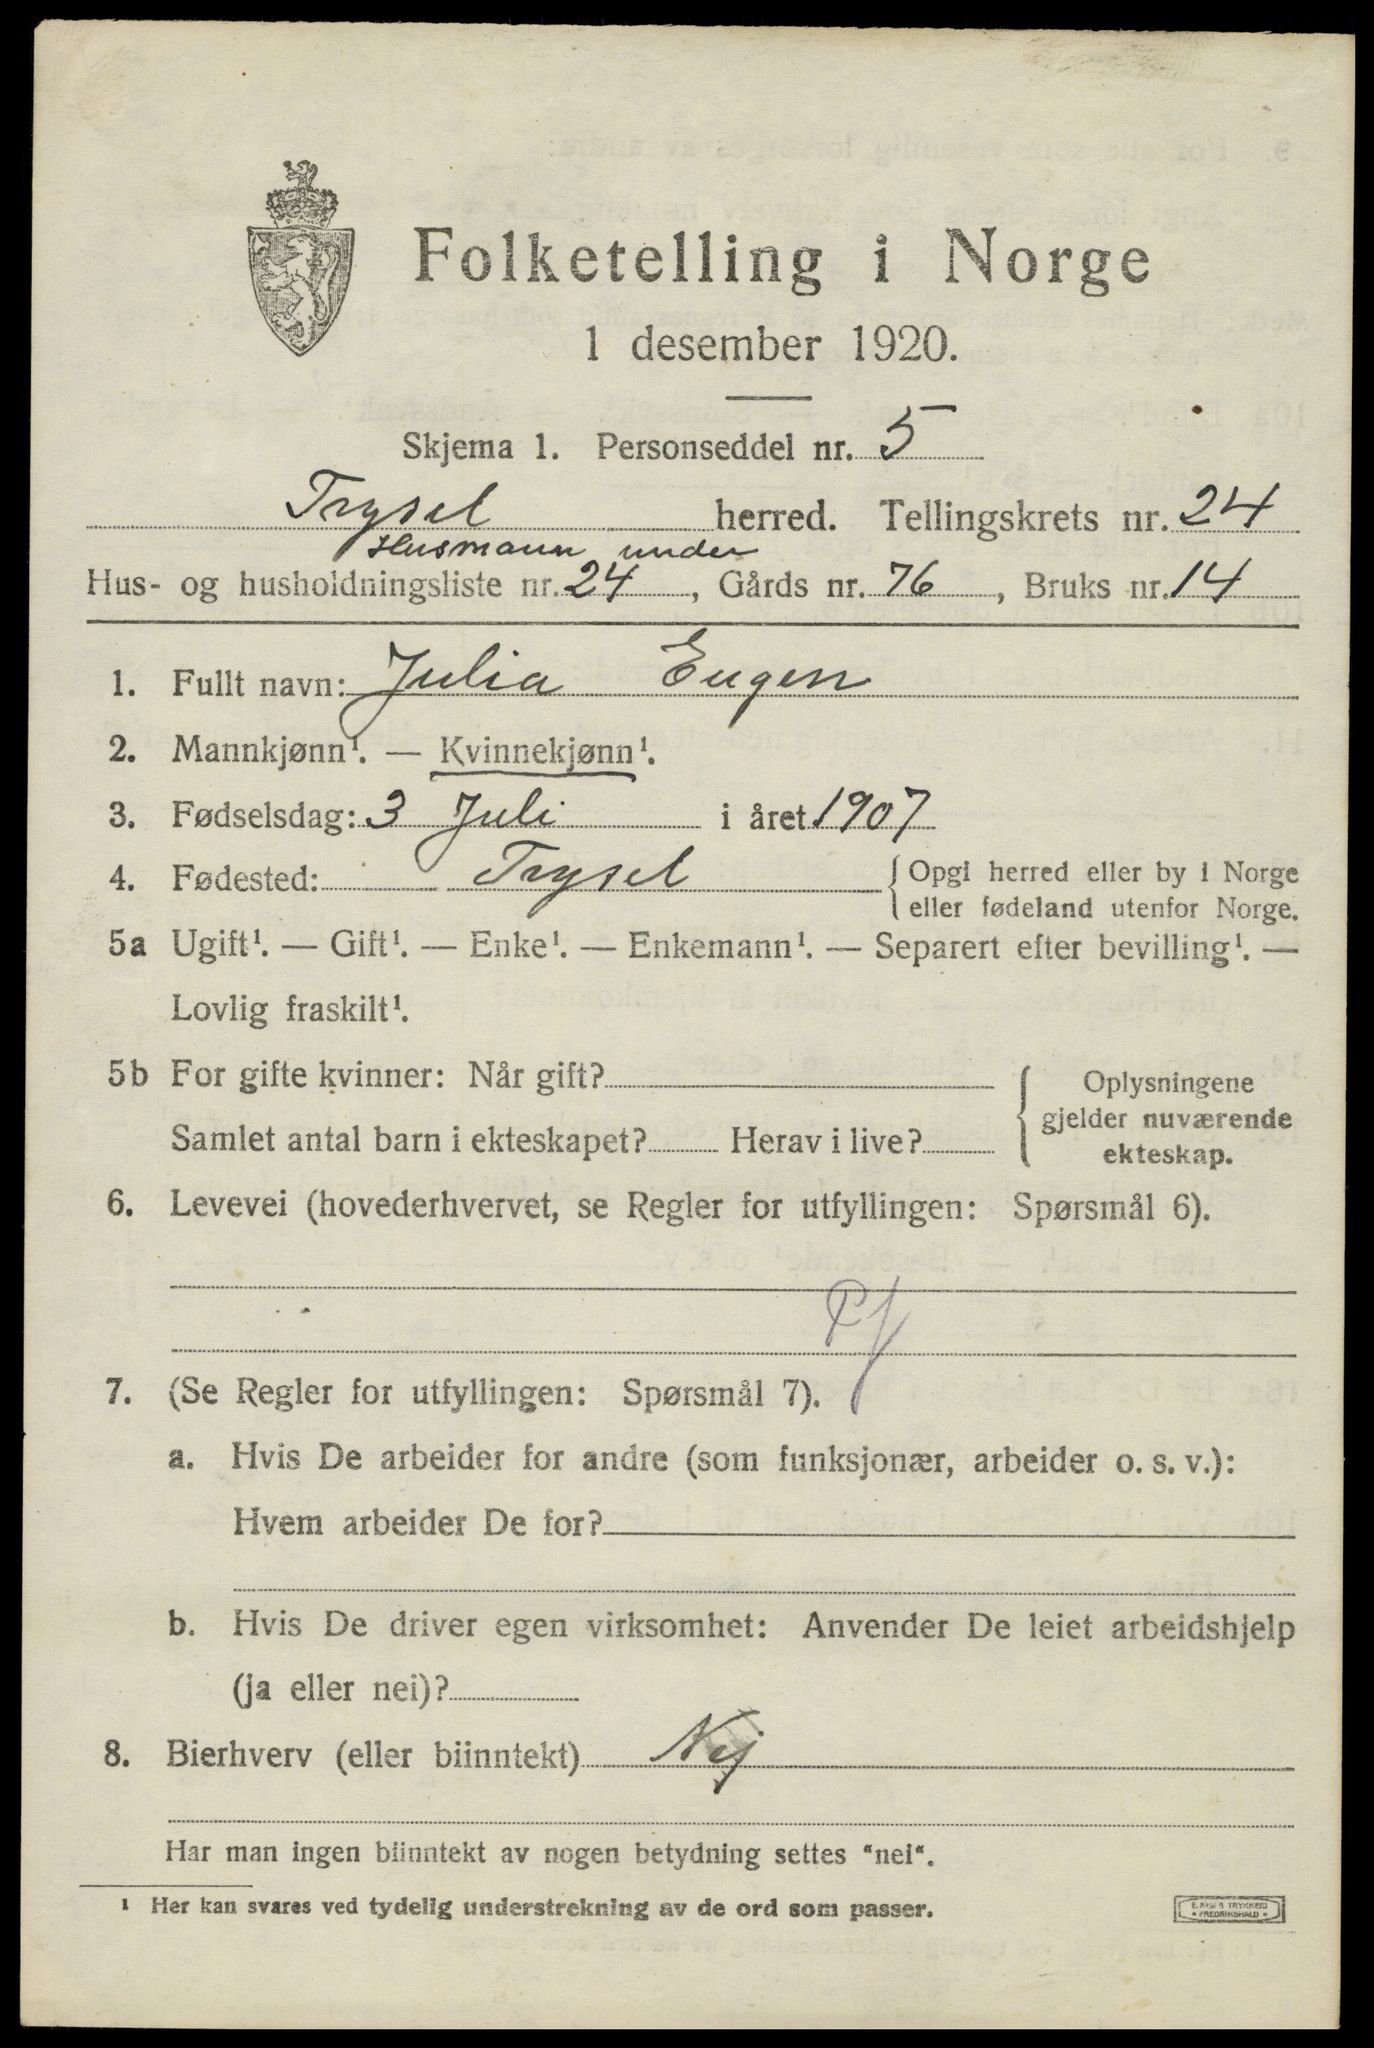 Folketelling i Norge
1 desember 1920.
Skjema 1. Personseddel nr. 5
Trysil herred. Tellingskrets nr. 24
Husmann under
Hus- og husholdningsliste nr. 24, Gårds nr. 76, Bruks nr. 14
1. Fullt navn: Julia Eugen
2. Mannkjønn¹. — Kvinnekjønn¹.
3. Fødselsdag: 3 Juli i året 1907
4. Fødested: Trysil {Opgi herred eller by i Norge
eller fødeland utenfor Norge.
5a Ugift¹. — Gift¹. — Enke¹. — Enkemann¹. — Separert efter bevilling¹. —
Lovlig fraskilt¹.
5b For gifte kvinner: Når gift?
Samlet antal barn i ekteskapet? Herav i live?
{Oplysningene
gjelder nuværende
ekteskap.
6. Levevei (hovederhvervet, se Regler for utfyllingen: Spørsmål 6).
7. (Se Regler for utfyllingen: Spørsmål 7).
a. Hvis De arbeider for andre (som funksjonær, arbeider o. s. v.):
Hvem arbeider De for?
b. Hvis De driver egen virksomhet: Anvender De leiet arbeidshjelp
(ja eller nei)?
8. Bierhverv (eller biinntekt) Nej
Har man ingen biinntekt av nogen betydning settes "nei".
¹ Her kan svares ved tydelig understrekning av de ord som passer.